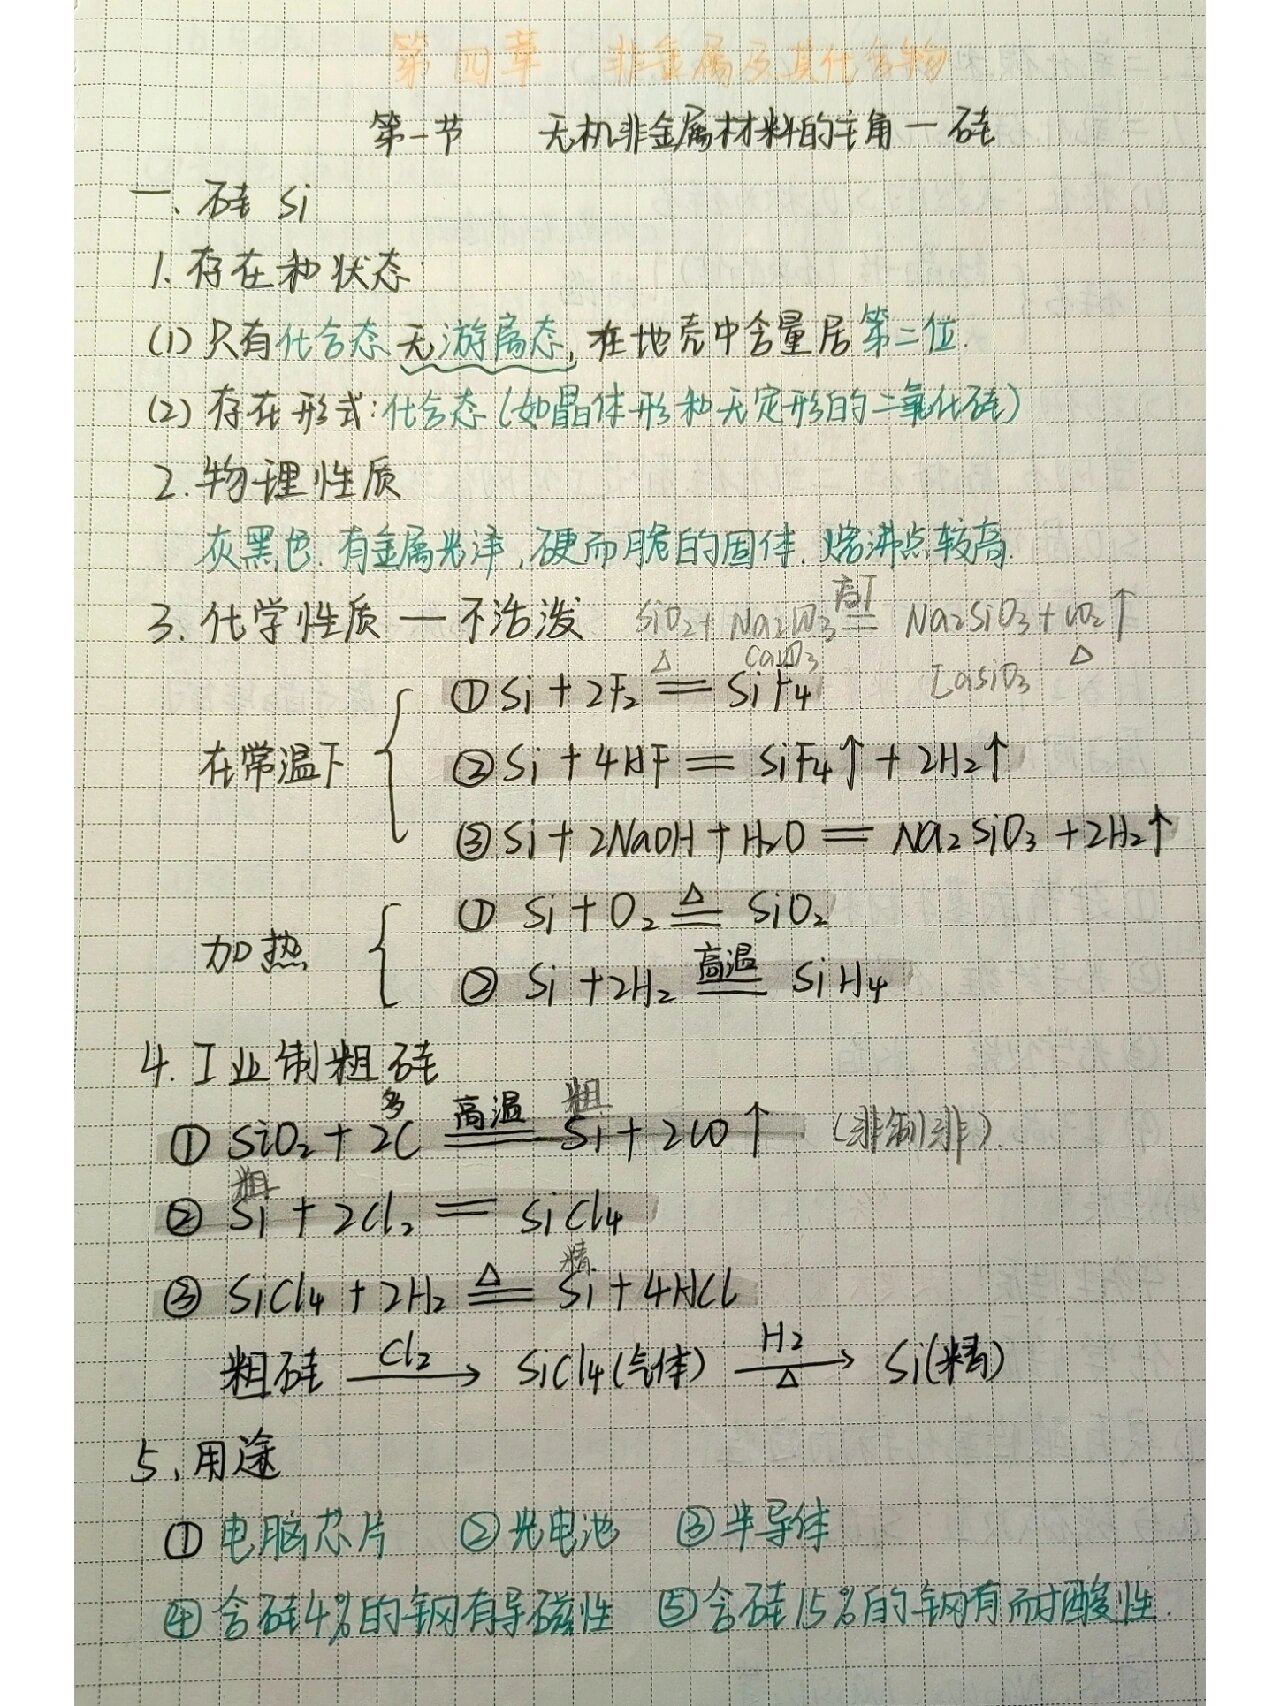 第四章 非金属及其化合物
第一节 无机非金属材料的主角一硅
一、硅 Si
1. 存在和状态
(1) 只有化合态 无游离态, 在地壳中含量居第二位.
(2) 存在形式: 化合态 (如晶体形和无定形的二氧化硅)
2. 物理性质
灰黑色. 有金属光泽, 硬而脆的固体. 熔沸点较高.
3. 化学性质 — 不活泼 SiO₂ + Na₂CO₃ 高T = Na₂SiO₃ + CO₂↑
CaCO₃ △ CaSiO₃
在常温下
① Si + 2F₂ △ = SiF₄
② Si + 4HF = SiF₄↑ + 2H₂↑
③ Si + 2NaOH + H₂O = Na₂SiO₃ + 2H₂↑
加热
① Si + O₂ △ = SiO₂
② Si + 2H₂ 高温 = SiH₄
4. 工业制粗硅
① SiO₂ + 2C 多 高温 = Si 粗 + 2CO↑ (非制非)
② Si 粗 + 2Cl₂ = SiCl₄
③ SiCl₄ + 2H₂ △ = Si 精 + 4HCl
粗硅 Cl₂ → SiCl₄(气体) H₂ △ → Si(精)
5、用途
① 电脑芯片 ② 光电池 ③ 半导体
④ 含硅4%的钢有导磁性 ⑤ 含硅15%的钢有耐酸性.